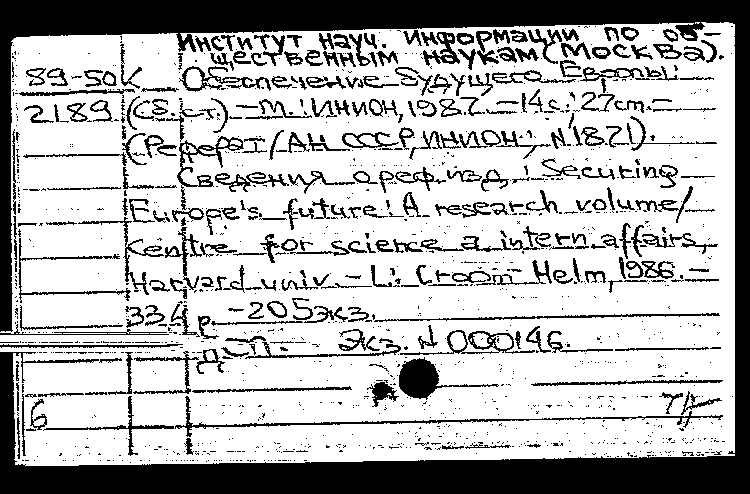 Институт науч. информации по об-
щественным наукам (Москва).
89-50К Обеспечение будущего Европы:
2189 (Сб. ст.) - М.: ИНИОН, 1987. - 14с.; 27см. -
(Реферат / АН СССР, ИНИОН; N 1871).
Сведения о реф. изд.: Securing
Europe's future: A research volume/
Centre for science a. intern. affairs,
Harvard univ. - L.: Croom Helm, 1986. -
334 p. - 205экз.
ДСП. Экз. N 000146.
6